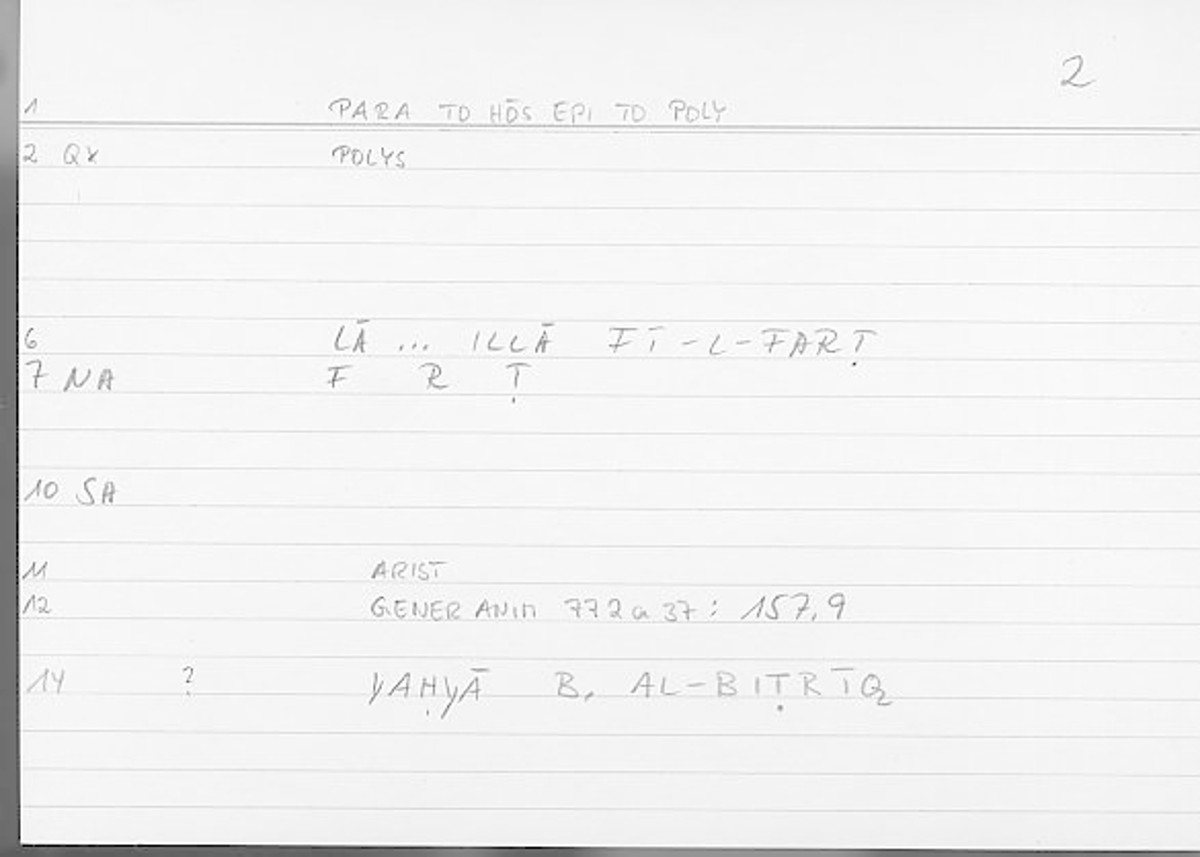 2
1 PARA TO HŌS EPI TO POLY
2 QX POLYS
6 LĀ ... ILLĀ FĪ-L-FARṬ
7 NA F R Ṭ
10 SA
11 ARIST
12 GENER ANIM 772a37: 157,9
14 ? YAḤYĀ B. AL-BIṬRĪQ